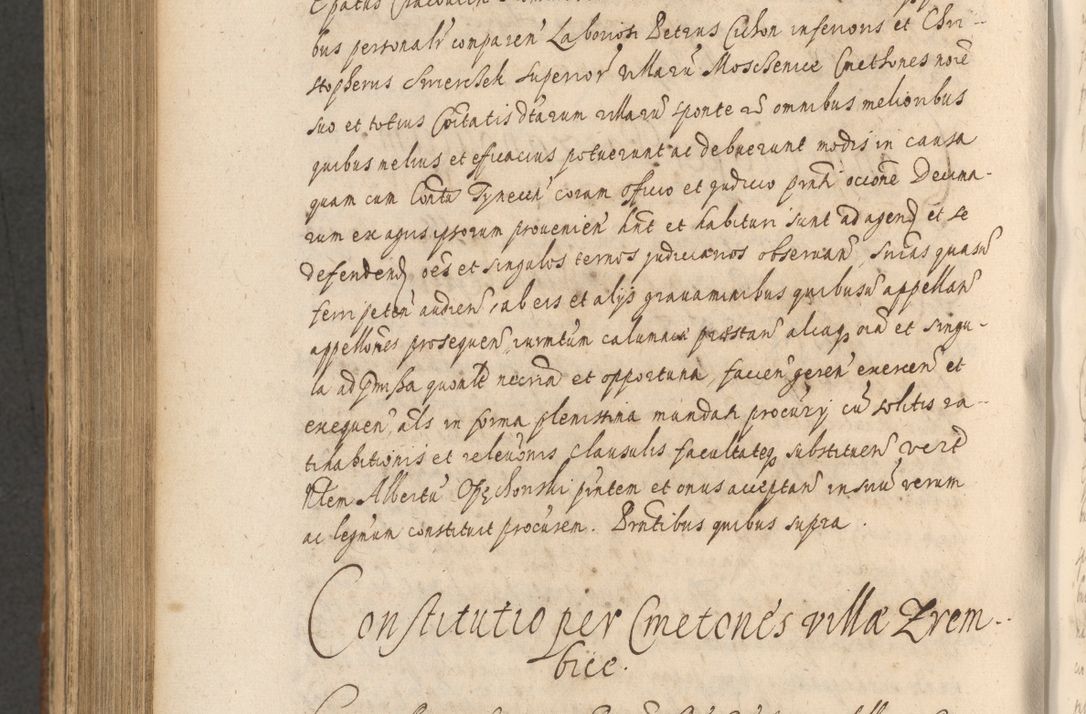 bus personalr comparen̄ Laboriosi Petrus Cichon inferioris et Chri-
stopherus Smerchek superior̄ villarū Moschenice Cmethones noīe
suo et totius Coītatis dtarum villarū sponte ac omnibus melioribus
quibus melius et eficacius potuerunt ac debuerunt modis in causa
quam cum Contū Tynecen̄ coram officio et judicio pn̄ti occ̄one Decima-
rum ex agris ipsorum provenien̄ hn̄t et habituri sunt ad agend et se
defendend oēs et singulos termos judiciarios observan̄, sn̄ias quasv̄
ferri peten̄ audien̄, ab eis et alijs gravaminibus quibusv̄ appellan̄
appellōnes prosequen̄ iurmtum calumniæ præstan̄ aliaq oīa et singu-
la ad p̄missa quomlt necria et opportuna, facien̄ geren̄ exercen̄ et
exequen̄, als in forma plenissima mandati procurij cū solitis ra-
tihabitionis et relevōnis clausulis facultateq substituen̄ vert
Nlem Albertū Opęchonski pn̄tem et onus acceptan̄ in suū verum
ac legmum constituit procurem. Pn̄tibus quibus supra.
Constitutio per Cmetones villæ Zrem-
bice.